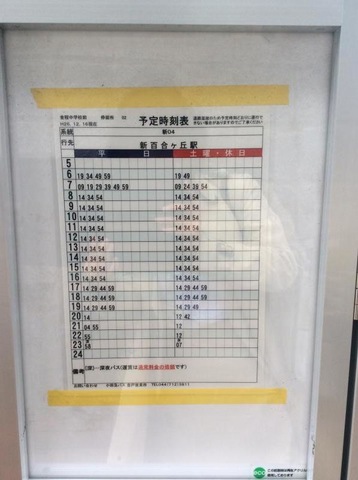 予定時刻表
H25. 12. 16現在
系統 新04
行先 新百合ヶ丘駅
平 日 土曜・休日
5
6 19 34 49 59 19 49
7 09 19 29 39 49 59 09 24 39 54
8 14 34 54 14 34 54
9 14 34 54 14 34 54
10 14 34 54 14 34 54
11 14 34 54 14 34 54
12 14 34 54 14 34 54
13 14 34 54 14 34 54
14 14 34 54 14 34 54
15 14 34 54 14 34 54
16 14 34 54 14 34 54
17 14 29 44 59 14 29 44 59
18 14 29 44 59 14 29 44 59
19 14 29 44 59 14 29 44 59
20 14 12 42
21 04 55 12
22 55 12
23 58 07
24
備考 (深)－深夜バス(運賃は通常料金の倍額です)
お問い合わせ